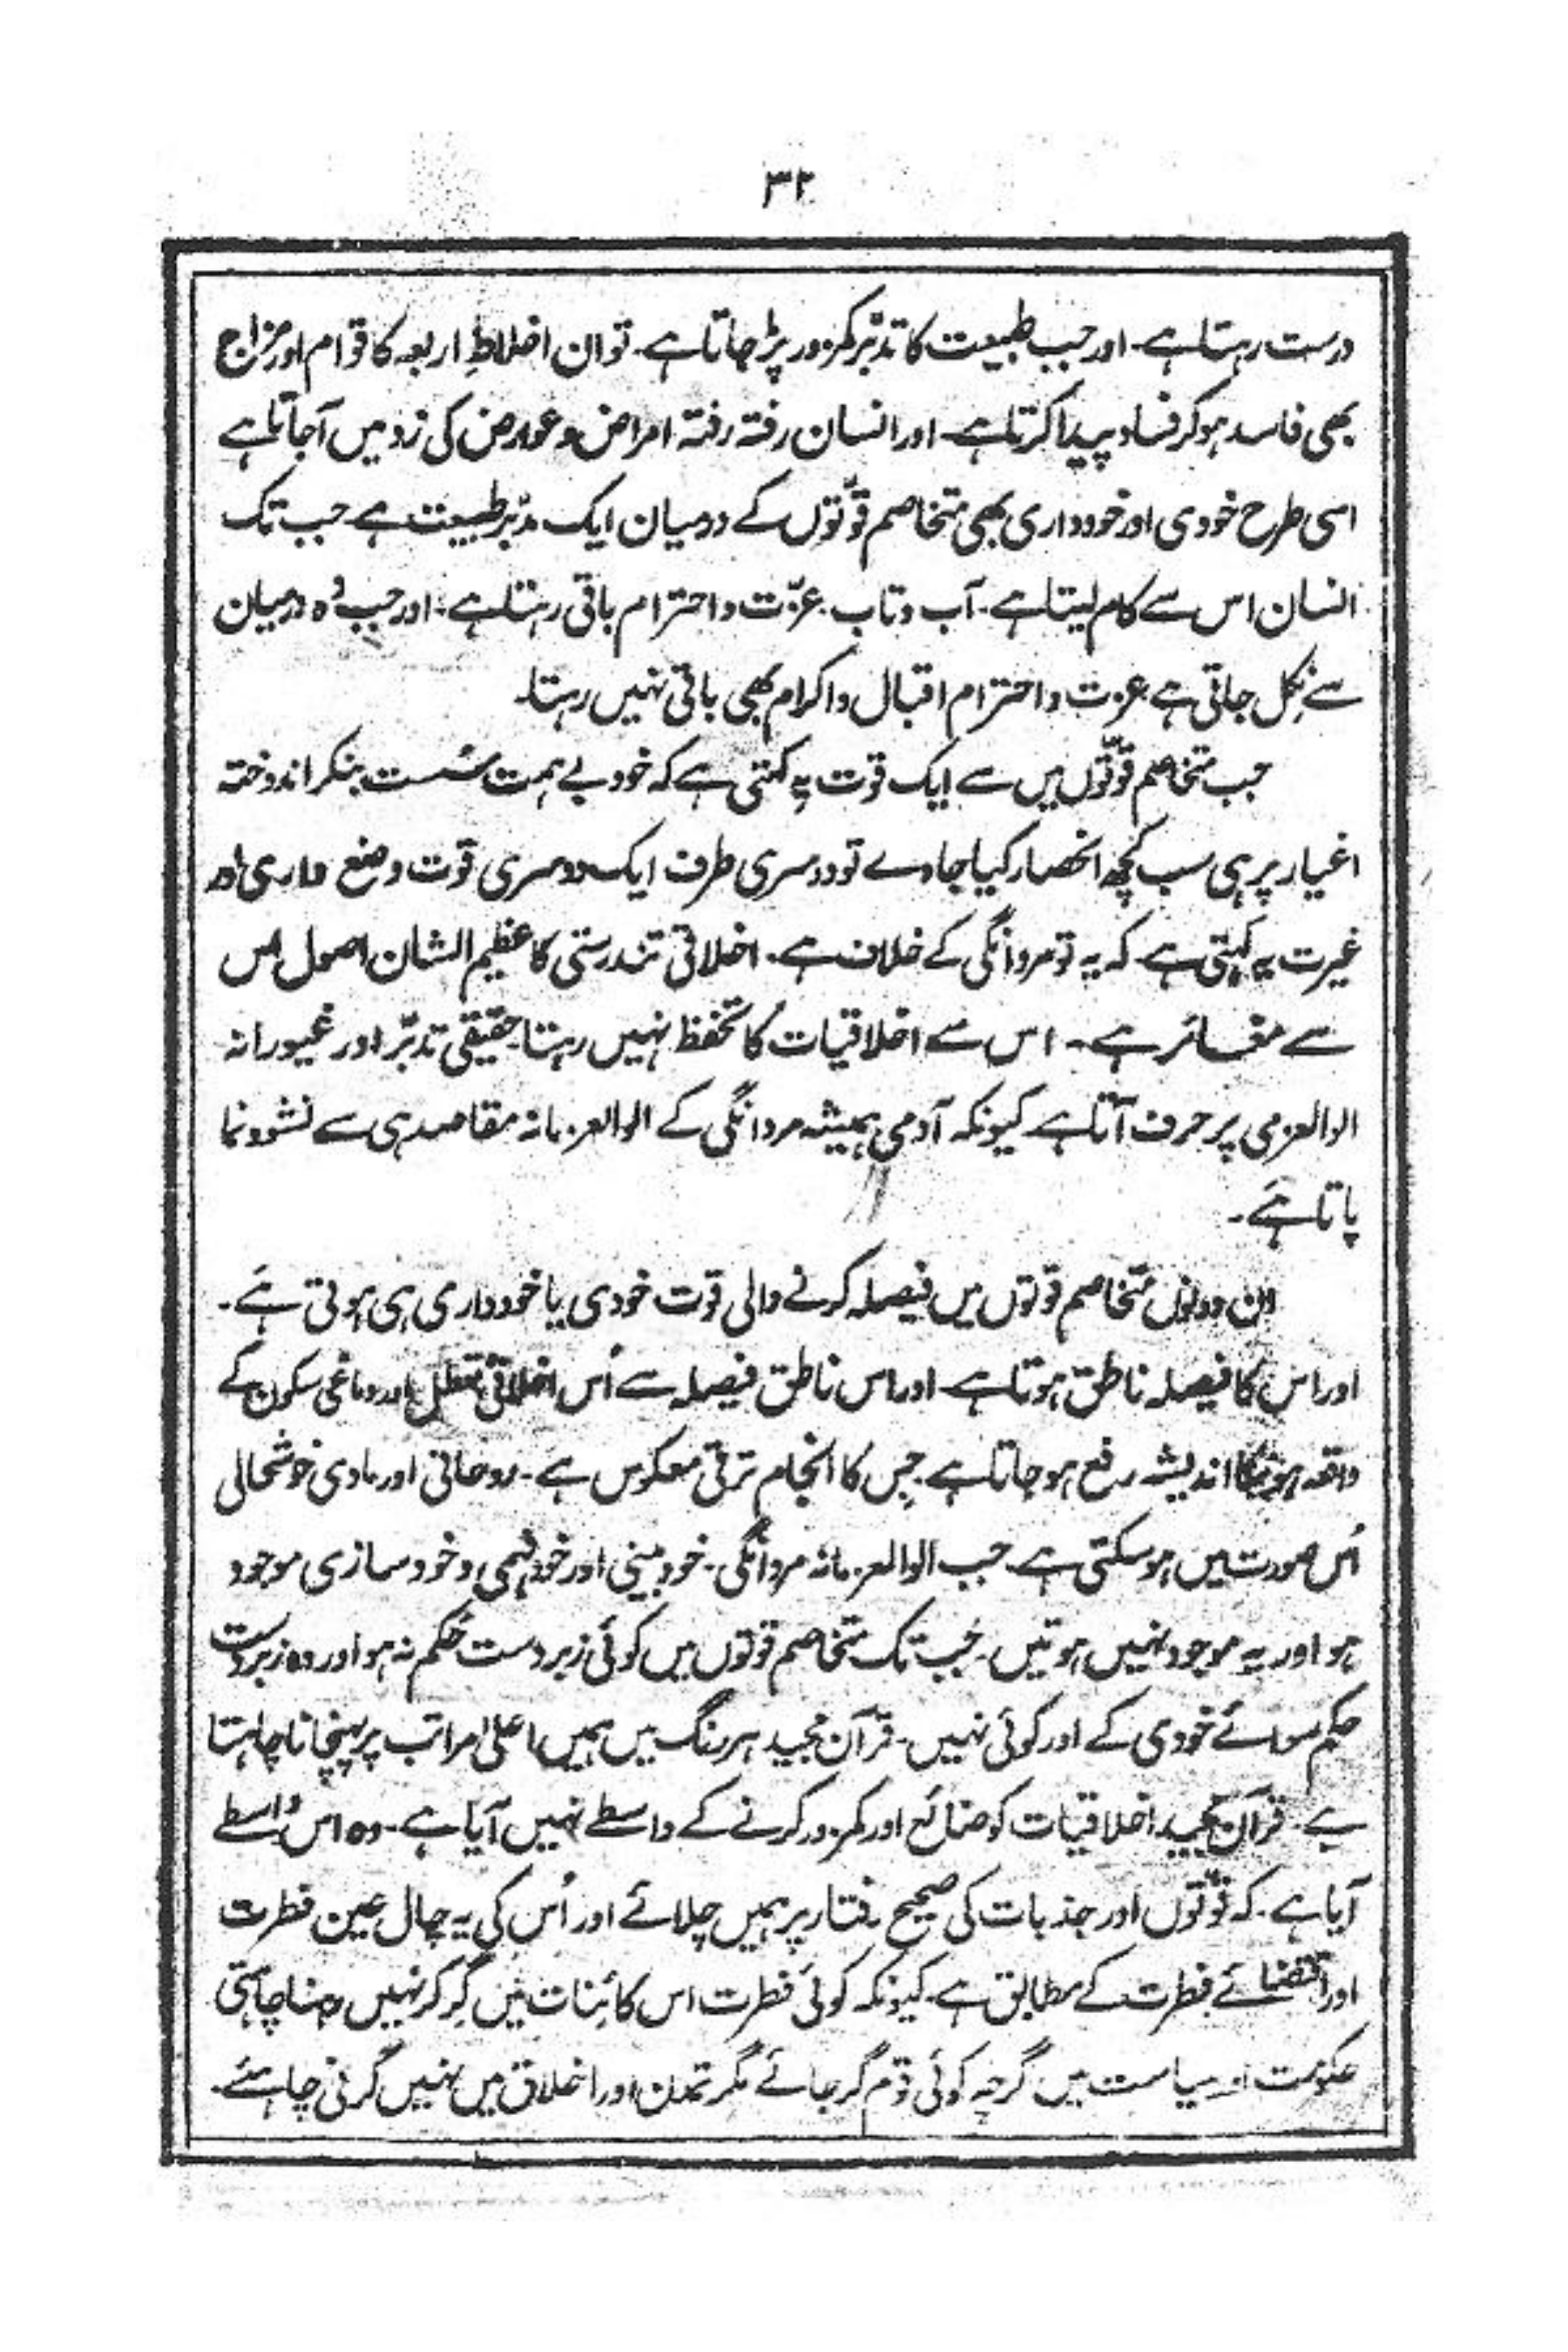 ۳۲
درست رہتا ہے۔ اور جب طبیعت کا تدبّر کمزور پڑ جاتا ہے۔ تو ان اخلاطِ اربعہ کا قوام اور مزاج
بھی فاسد ہو کر فساد پیدا کرتا ہے۔ اور انسان رفتہ رفتہ امراض و عوارض کی زد میں آجاتا ہے
اسی طرح خودی اور خودداری بھی متخاصم قوّتوں کے درمیان ایک مدبّر طبیعت ہے جب تک
انسان اس سے کام لیتا ہے۔ آب و تاب۔ عزّت و احترام باقی رہتا ہے۔ اور جب وُہ درمیان
سے نِکل جاتی ہے عزت و احترام اقبال و اکرام بھی باقی نہیں رہتا۔
جب متخاصم قوّتوں میں سے ایک قوت یہ کہتی ہے کہ خود بے ہمت سُست بنکر اندوختہ
اغیار پر ہی سب کچھ انحصار کیا جاوے تو دوسری طرف ایک دوسری قوت وضع داری اور
غیرت یہ کہتی ہے کہ یہ تو مردانگی کے خلاف ہے۔ اخلاقی تندرستی کا عظیم الشان اصول اس
سے مغائر ہے۔ اس سے اخلاقیات کا تحفظ نہیں رہتا حقیقی تدبّر اور غیورانہ
الوالعزمی پر حرف آتا ہے کیونکہ آدمی ہمیشہ مردانگی کے الوالعزمانہ مقاصد ہی سے نشوونما
پاتا ہے۔
ان دونوں متخاصم قوتوں میں فیصلہ کرنے والی قوت خودی یا خودداری ہی ہوتی ہے۔
اور اس کا فیصلہ ناطق ہوتا ہے۔ اور اس ناطق فیصلہ سے اُس اخلاقی تعطل اور دماغی سکون کے
واقعہ ہونیکا اندیشہ رفع ہو جاتا ہے جس کا انجام ترقی معکوس ہے۔ روحانی اور مادی خوشحالی
اُس صورت میں ہو سکتی ہے جب الوالعزمانہ مردانگی۔ خود بینی اور خود فہمی و خود سازی موجود
ہو اور یہ موجود نہیں ہوتیں۔ جب تک متخاصم قوتوں میں کوئی زبردست حَکم نہ ہو اور وہ زبردست
حکم سوائے خودی کے اور کوئی نہیں۔ قرآن مجید ہر رنگ میں ہمیں اعلیٰ مراتب پر پہنچانا چاہتا
ہے۔ قرآن مجید اخلاقیات کو ضائع اور کمزور کرنے کے واسطے نہیں آیا ہے۔ وہ اس واسطے
آیا ہے۔ کہ قوّتوں اور جذبات کی صحیح رفتار پر ہمیں چلائے اور اُس کی یہ چال عین فطرت
اور اقتضائے فطرت کے مطابق ہے۔ کیونکہ کوئی فطرت اس کائنات میں گِر کر نہیں رہنا چاہتی
حکومت اور سیاست میں گرچہ کوئی قوم گر جائے مگر تمدن اور اخلاق میں نہیں گرنی چاہئے۔